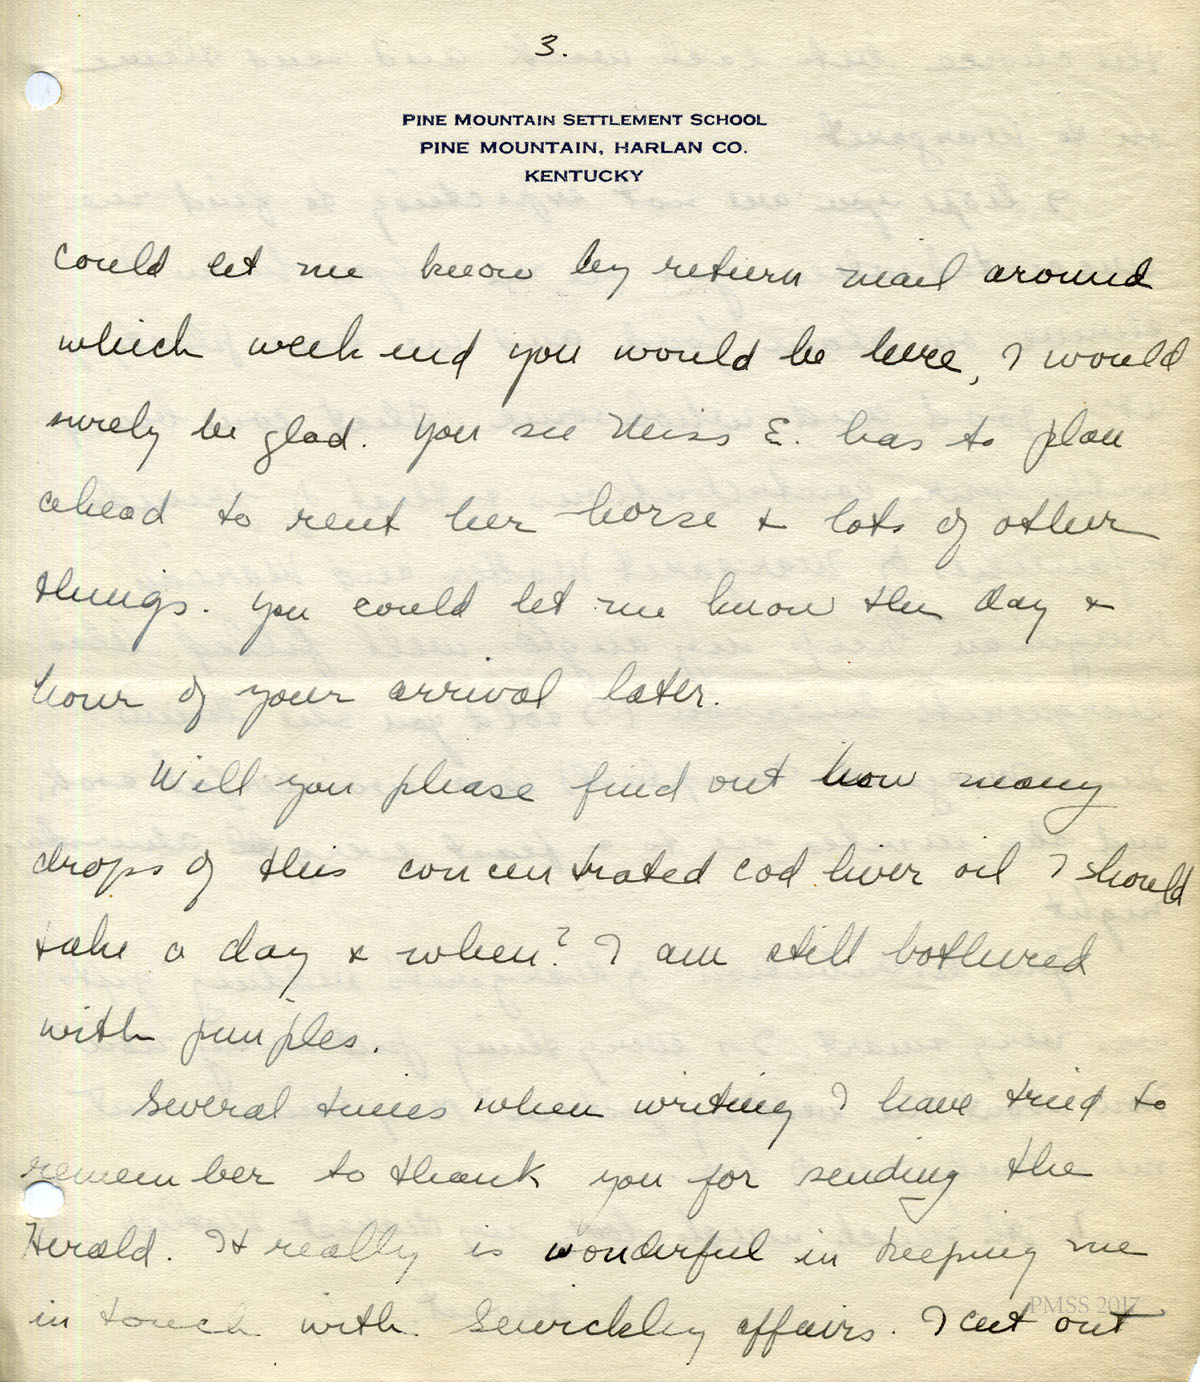 3.
PINE MOUNTAIN SETTLEMENT SCHOOL
PINE MOUNTAIN, HARLAN CO.
KENTUCKY
could let me know by return mail around
which week end you would be here, I would
surely be glad. You see Miss E. has to plan
ahead to rent her horse & lots of other
things. You could let me know the day &
hour of your arrival later.
Will you please find out how many
drops of this concentrated cod liver oil I should
take a day & when? I am still bothered
with pimples.
Several times when writing I have tried to
remember to thank you for sending the
Herald. It really is wonderful in keeping me
in touch with Sewickley affairs. I cut out
PMSS 2017